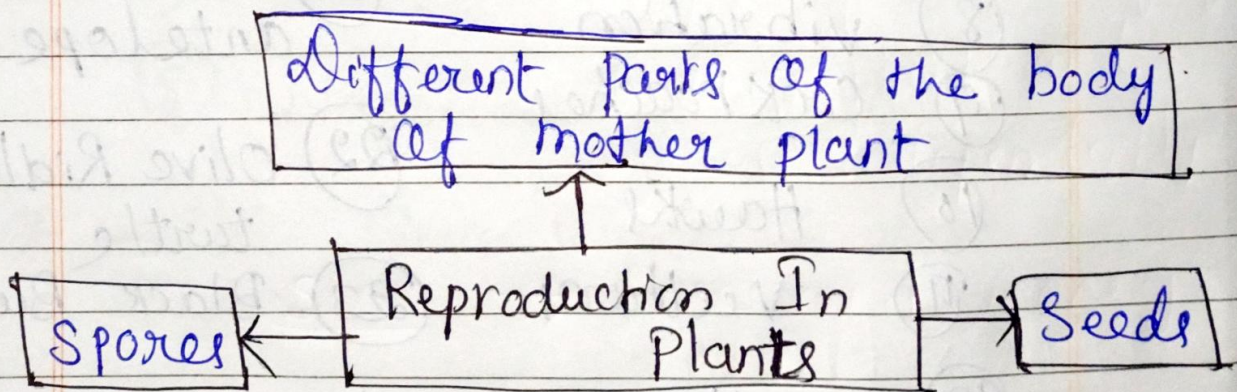 Different parts of the body
of mother plant
Reproduction In
Plants
Spores
Seeds